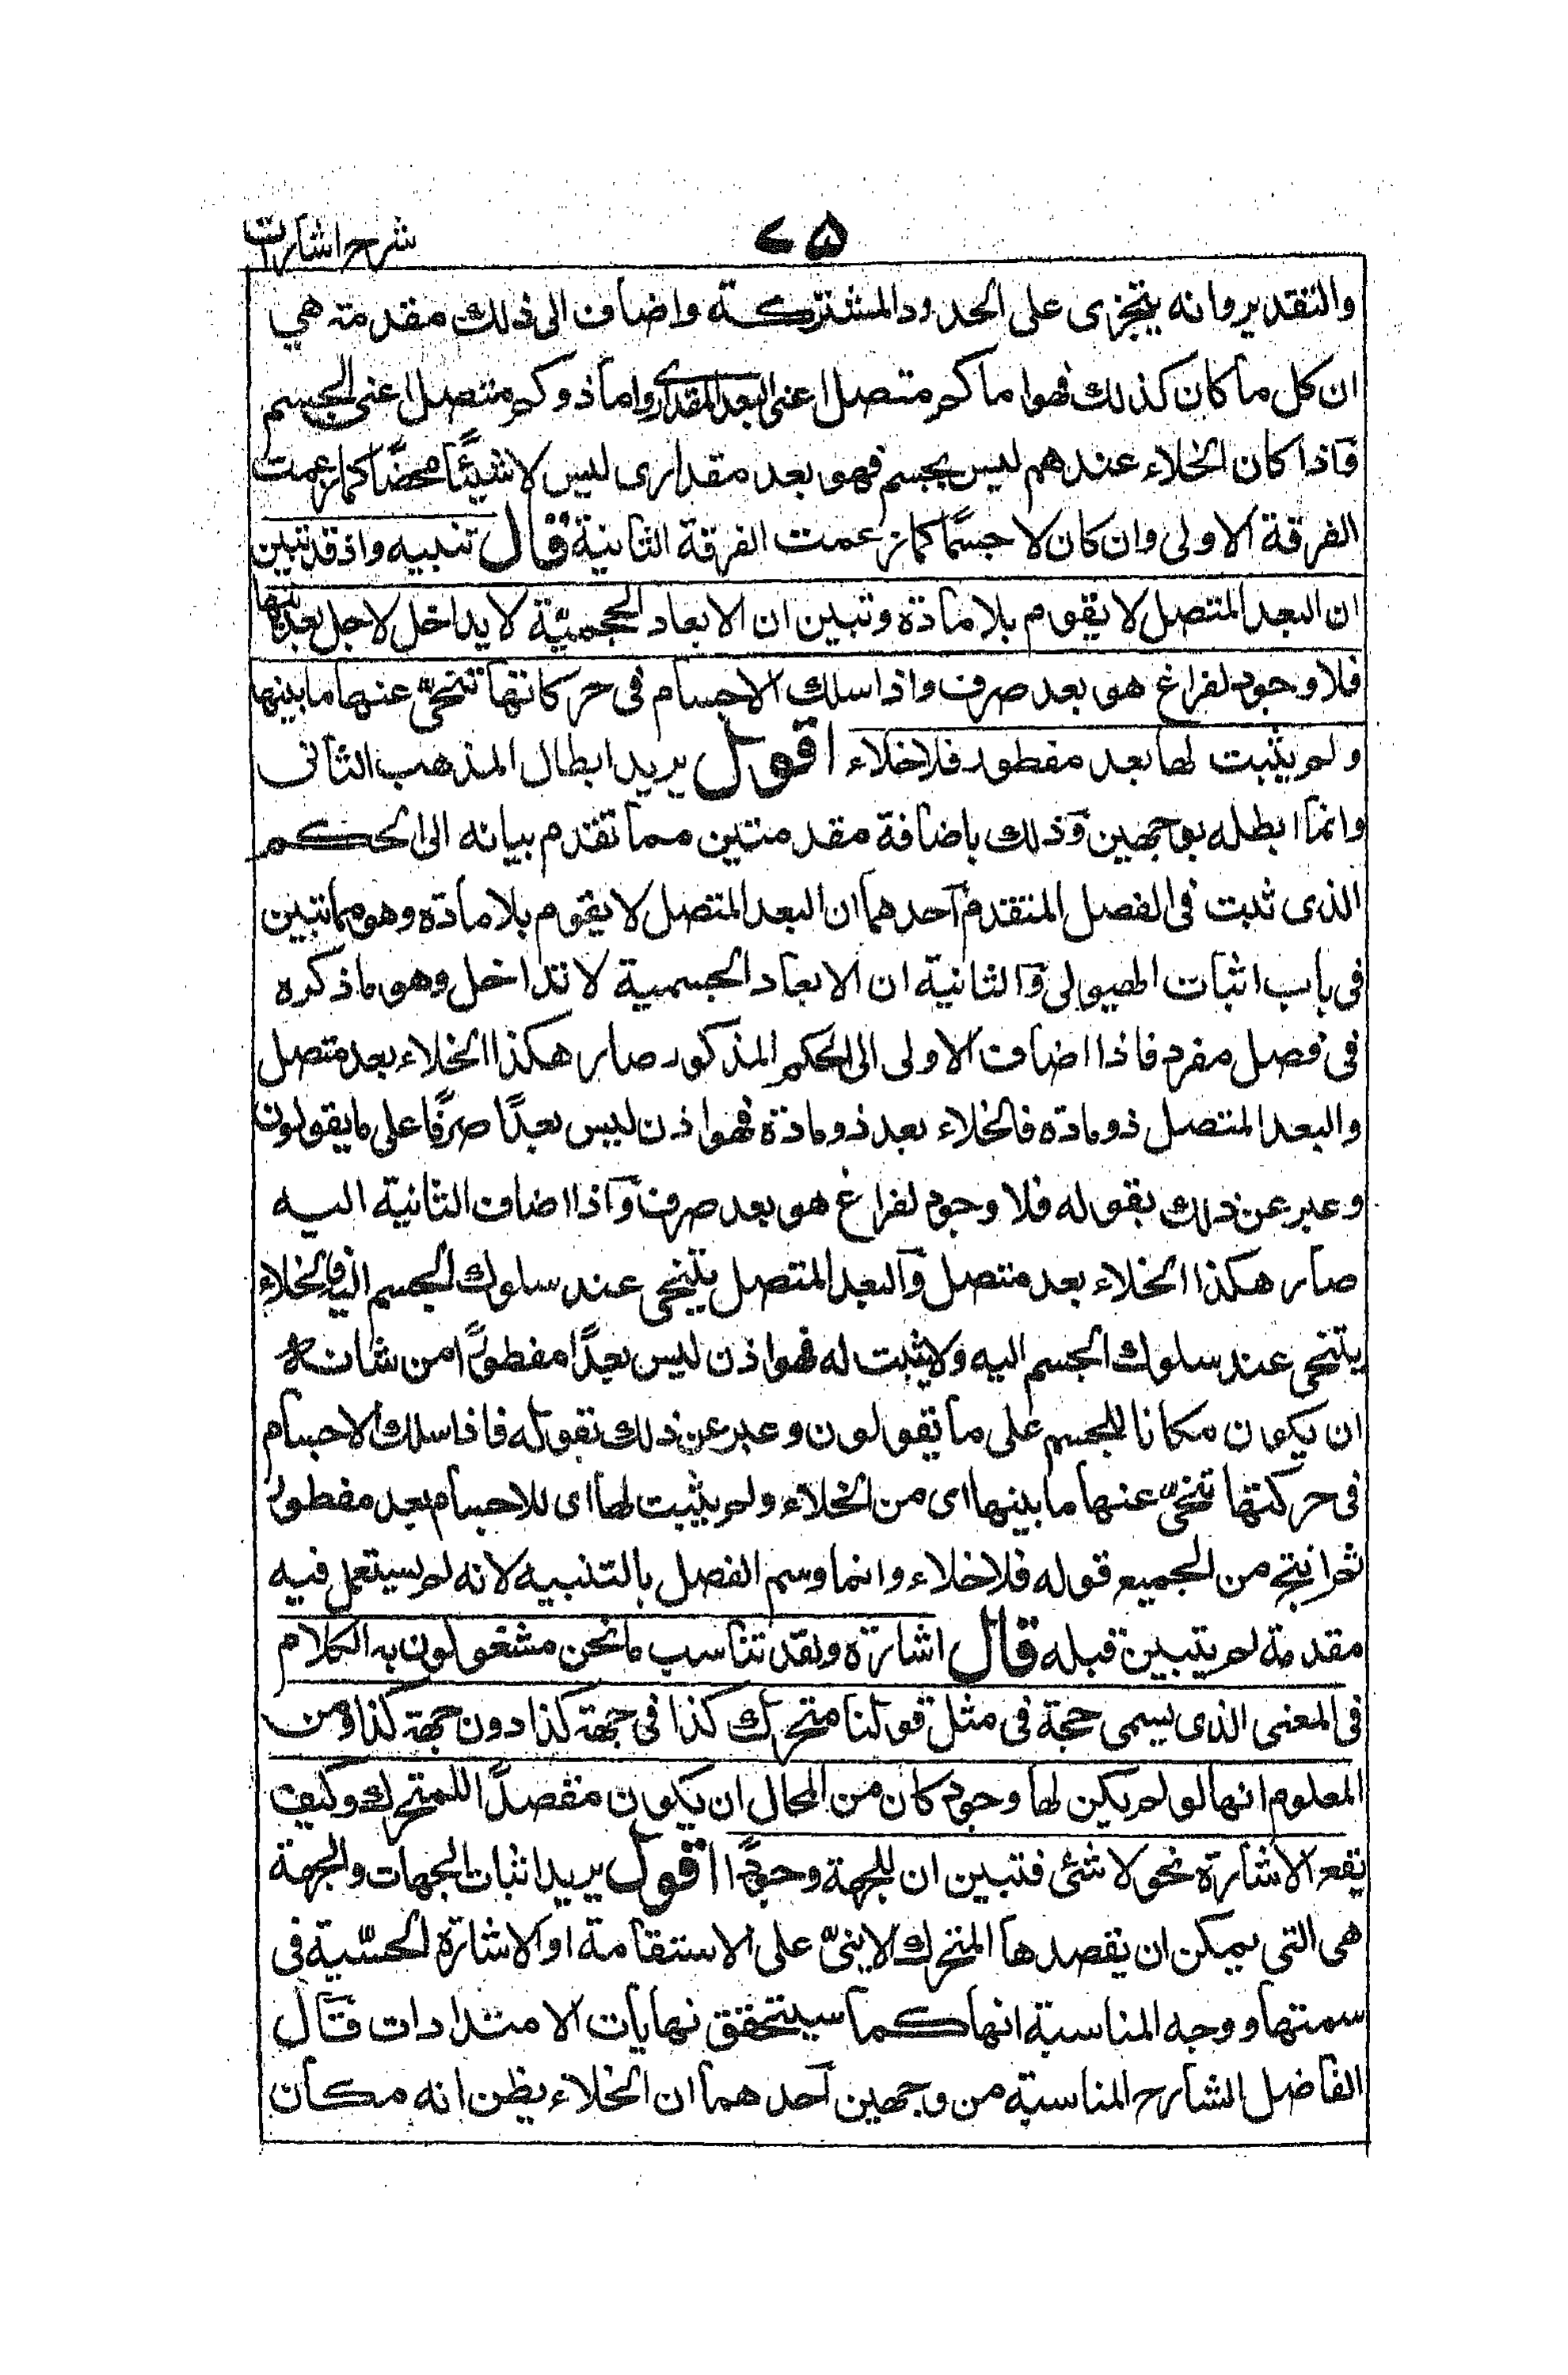 شرح اشارات
٧٥
والتقدير وانه يتجزى على الحدود المشتركة واضاف الى ذلك مقدمة هي
ان كل ما كان كذلك فهو اما كم متصل اعنى البعد المقدارى واما ذو كم متصل اعنى الجسم
فاذا كان الخلاء عندهم ليس بجسم فهو بعد مقدارى ليس لا شيئًا محضًا كما زعمت
الفرقة الاولى وان كان لا جسمًا كما زعمت الفرقة الثانية قال تنبيه واذ قد تبين
ان البعد المتصل لا يقوم بلا مادة وتبين ان الابعاد الحجمية لا يداخل لاجل بعديتها
فلا وجود لفراغ هو بعد صرف واذا سلك الاجسام فى حركاتها تنحّى عنها ما بينها
ولم يثبت لها بعد مفطور فلا خلاء اقول يريد ابطال المذهب الثانى
وانما ابطله بوجهين وذلك باضافة مقدمتين مما تقدم بيانه الى الحكم
الذى ثبت فى الفصل المتقدم احدهما ان البعد المتصل لا يقوم بلا مادة وهو مما تبين
فى باب اثبات الهيولى والثانية ان الابعاد الجسمية لا تتداخل وهو ما ذكره
فى فصل مفرد فاذا اضاف الاولى الى الحكم المذكور صار هكذا الخلاء بعد متصل
والبعد المتصل ذو مادة فالخلاء بعد ذو مادة فهو اذن ليس بعدًا صرفًا على ما يقولون
وعبر عن ذلك بقوله فلا وجود لفراغ هو بعد صرف واذا اضاف الثانية اليه
صار هكذا الخلاء بعد متصل والبعد المتصل يتنحى عند سلوك الجسم اليه فالخلاء
يتنحى عند سلوك الجسم اليه ولا يثبت له فهو اذن ليس بعدًا مفطورًا من شانه
ان يكون مكانا للجسم على ما تقولون وعبر عن ذلك بقوله فاذا سلك الاجسام
فى حركتها تنحّى عنها ما بينها اى من الخلاء ولم يثبت لها اى للاجسام بعد مفطور
ثم انتج من الجميع قوله فلا خلاء وانما وسم الفصل بالتنبيه لانه لم يستعمل فيه
مقدمة لم يتبين قبله قال اشارة ولقد تناسب ما نحن مشغولون به الكلام
فى المعنى الذى يسمى جهة فى مثل قولنا متحرك كذا فى جهة كذا دون جهة كذا ومن
المعلوم انها لو لم يكن لها وجود كان من المحال ان يكون مقصدًا للمتحرك وكيف
يقع الاشارة نحو لا شئ فتبين ان للجهة وجودًا اقول يريد اثبات الجهات والجهة
هى التى يمكن ان يقصدها المتحرك الاينىّ على الاستقامة او الاشارة الحسّية فى
سمتها ووجه المناسبة انها كما سيتحقق نهايات الامتدادات قال
الفاضل الشارح المناسبة من وجهين احدهما ان الخلاء يظن انه مكان